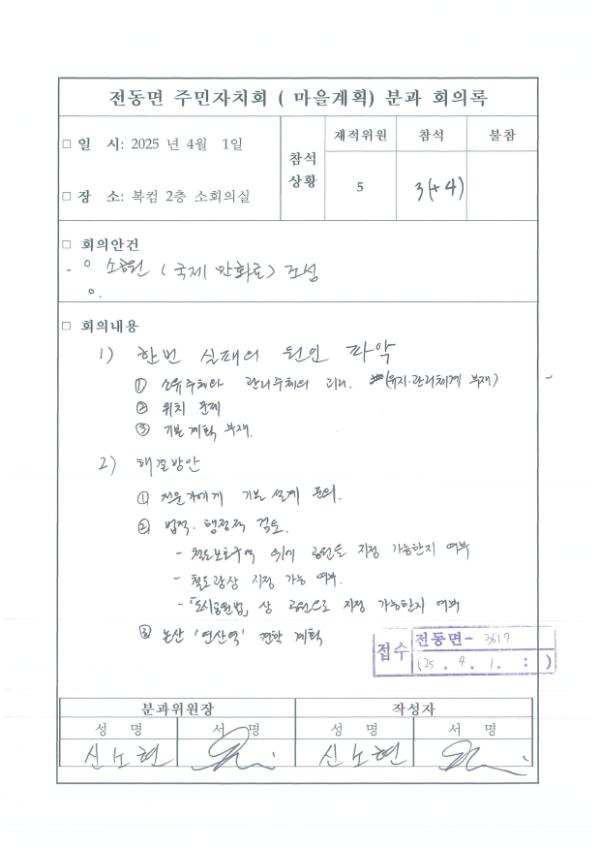 전동면 주민자치회 ( 마을계획) 분과 회의록
□ 일 시: 2025 년 4월 1일
□ 장 소: 복컴 2층 소회의실
참석
상황
재적위원 참석 불참
5 3(+4)
□ 회의안건
- ㅇ 소공원 ( 국제 만화로) 조성
ㅇ.
□ 회의내용
1) 한번 실패의 원인 파악
① 소유주체와 관리주체의 괴리. (유지·관리체계 부재)
② 위치 문제
③ 기본계획 부재.
2) 해결방안
① 전문가에게 기본 설계 문의.
② 법적·행정적 검토.
- 철도보호구역 위에 공원을 지정 가능한지 여부
- 지정 가능 여부.
- 「도시공원법」 상 공원으로 지정 가능한지 여부
③ 논산 '연산역' 견학 계획
접수 전동면- 3617
(25 . 4 . 1 . : )
분과위원장 작성자
성 명 서 명 성 명 서 명
신노현 신노현